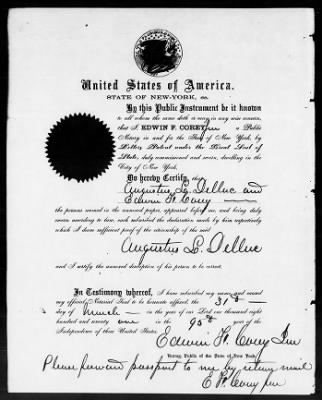 United States of America.
STATE OF NEW-YORK, ss.
By this Public Instrument be it known
to all whom the same doth or may in any wise concern,
that I, EDWIN F. COREY Jnr a Public
Notary in and for the State of New York, by
Letters Patent under the Great Seal of
State, duly commissioned and sworn, dwelling in the
City of New York,
Do hereby Certify, that
Augustus L. Delluc and
Edwin F. Corey
the persons named in the annexed paper, appeared before me, and being duly
sworn according to law, each subscribed the declaration made by him respectively
which I deem sufficient proof of the citizenship of the said
Augustus L. Delluc
and I certify the annexed description of his person to be correct.
In Testimony whereof, I have subscribed my name and caused
my official Notarial Seal to be hereunto affixed, the 31st
day of March in the year of our Lord one thousand eight
hundred and seventy one in the 95th year of the
Independence of these United States.
Edwin F. Corey Jnr
Notary Public of the State of New York.
Please forward passport to me by return mail
E F Corey Jnr